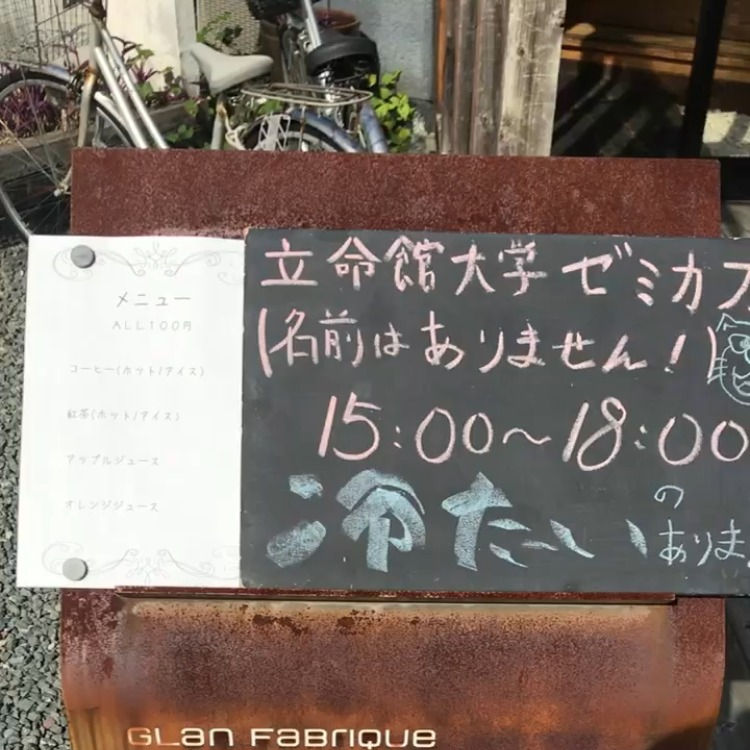 メニュー
ALL100円
コーヒー(ホット/アイス)
紅茶(ホット/アイス)
アップルジュース
オレンジジュース
立命館大学 ゼミカフ
(名前はありません!)
15:00〜18:00
冷たい
の
ありま
GLan FaBRIQUe